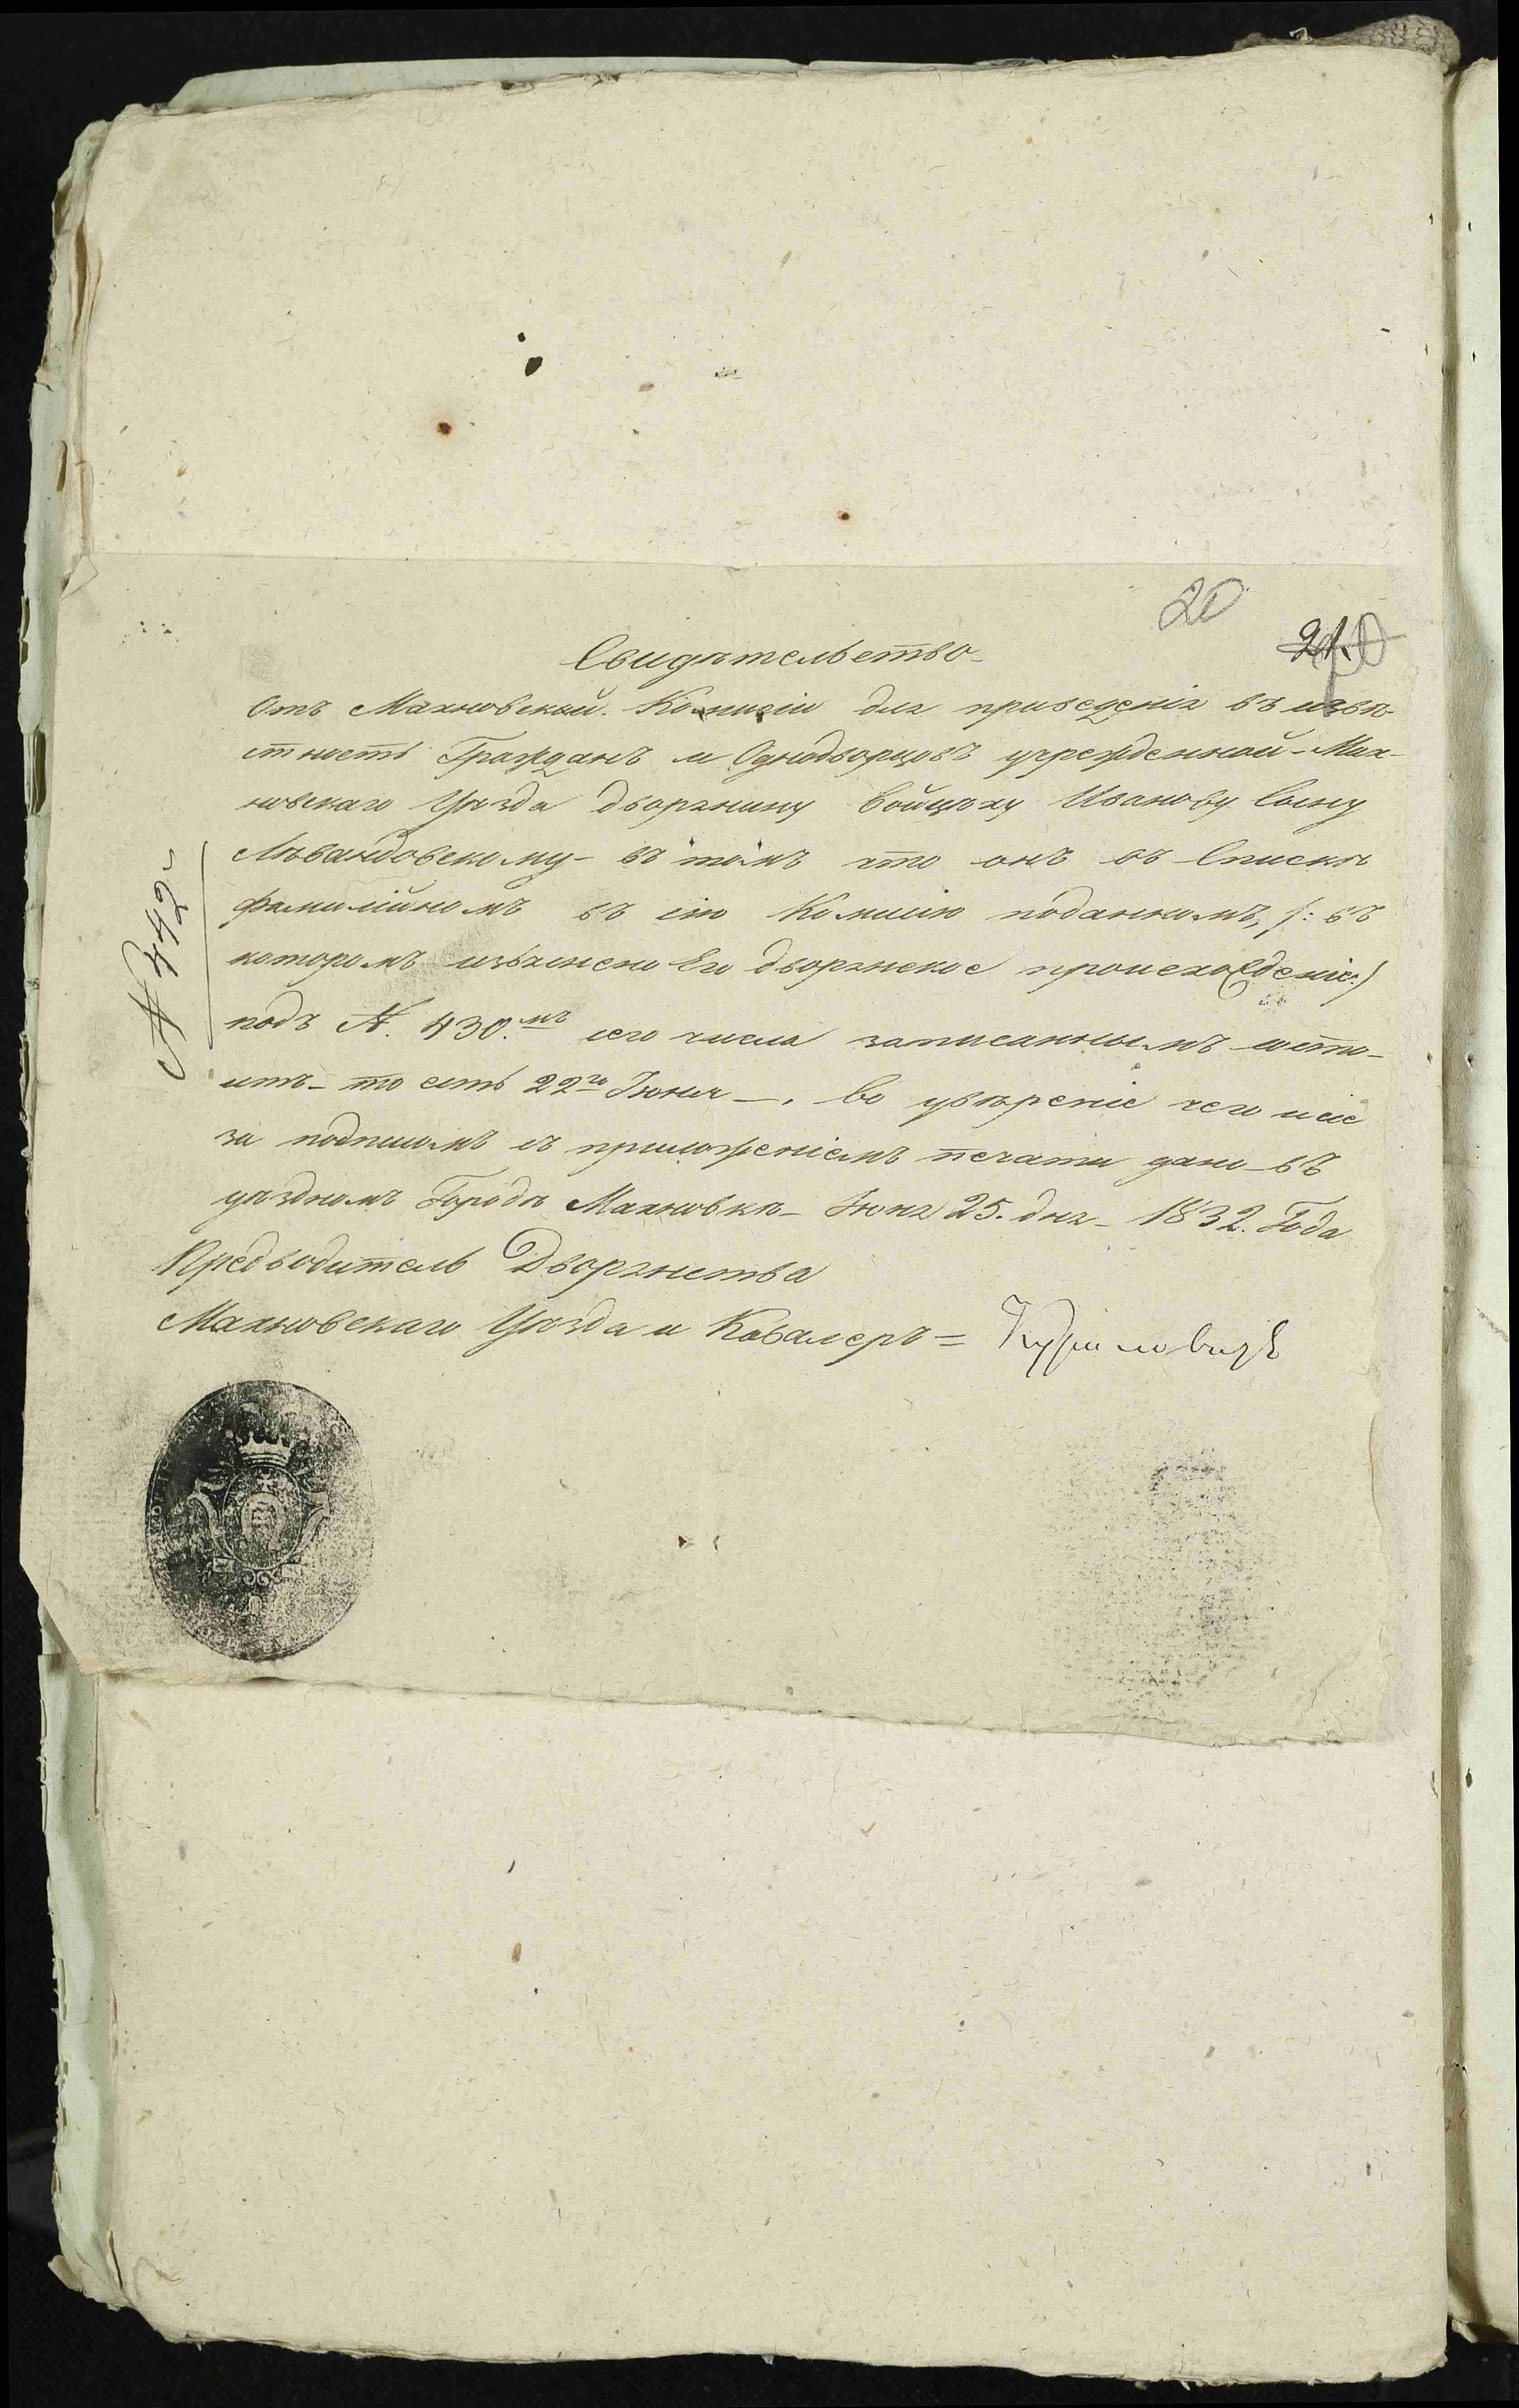 20
21.
Свидѣтельство
Отъ Махновской. Комисіи для приведенія въ извѣ-
стность Гражданъ и Однодворцовъ учрежденной - Мах-
новскаго Уѣзда дворянину Войцѣху Иванову Сыну
Лѣвандовскому - въ томъ что онъ въ Спискѣ
фамилійномъ въ сію Комисію поданномъ, /: въ
которомъ изъяснено Его дворянское происхожденіе :/
подъ N. 430.мъ сего числа записаннымъ состо-
итъ - то есть 22го Іюня -. Во увѣреніе чего и сіе
за подписомъ съ приложеніемъ печати дано - въ
уѣздномъ Городѣ Махновкѣ - Іюня 25. дня - 1832. Года
Предводитель Дворянства
Махновскаго Уѣзда и Кавалеръ =
N 442